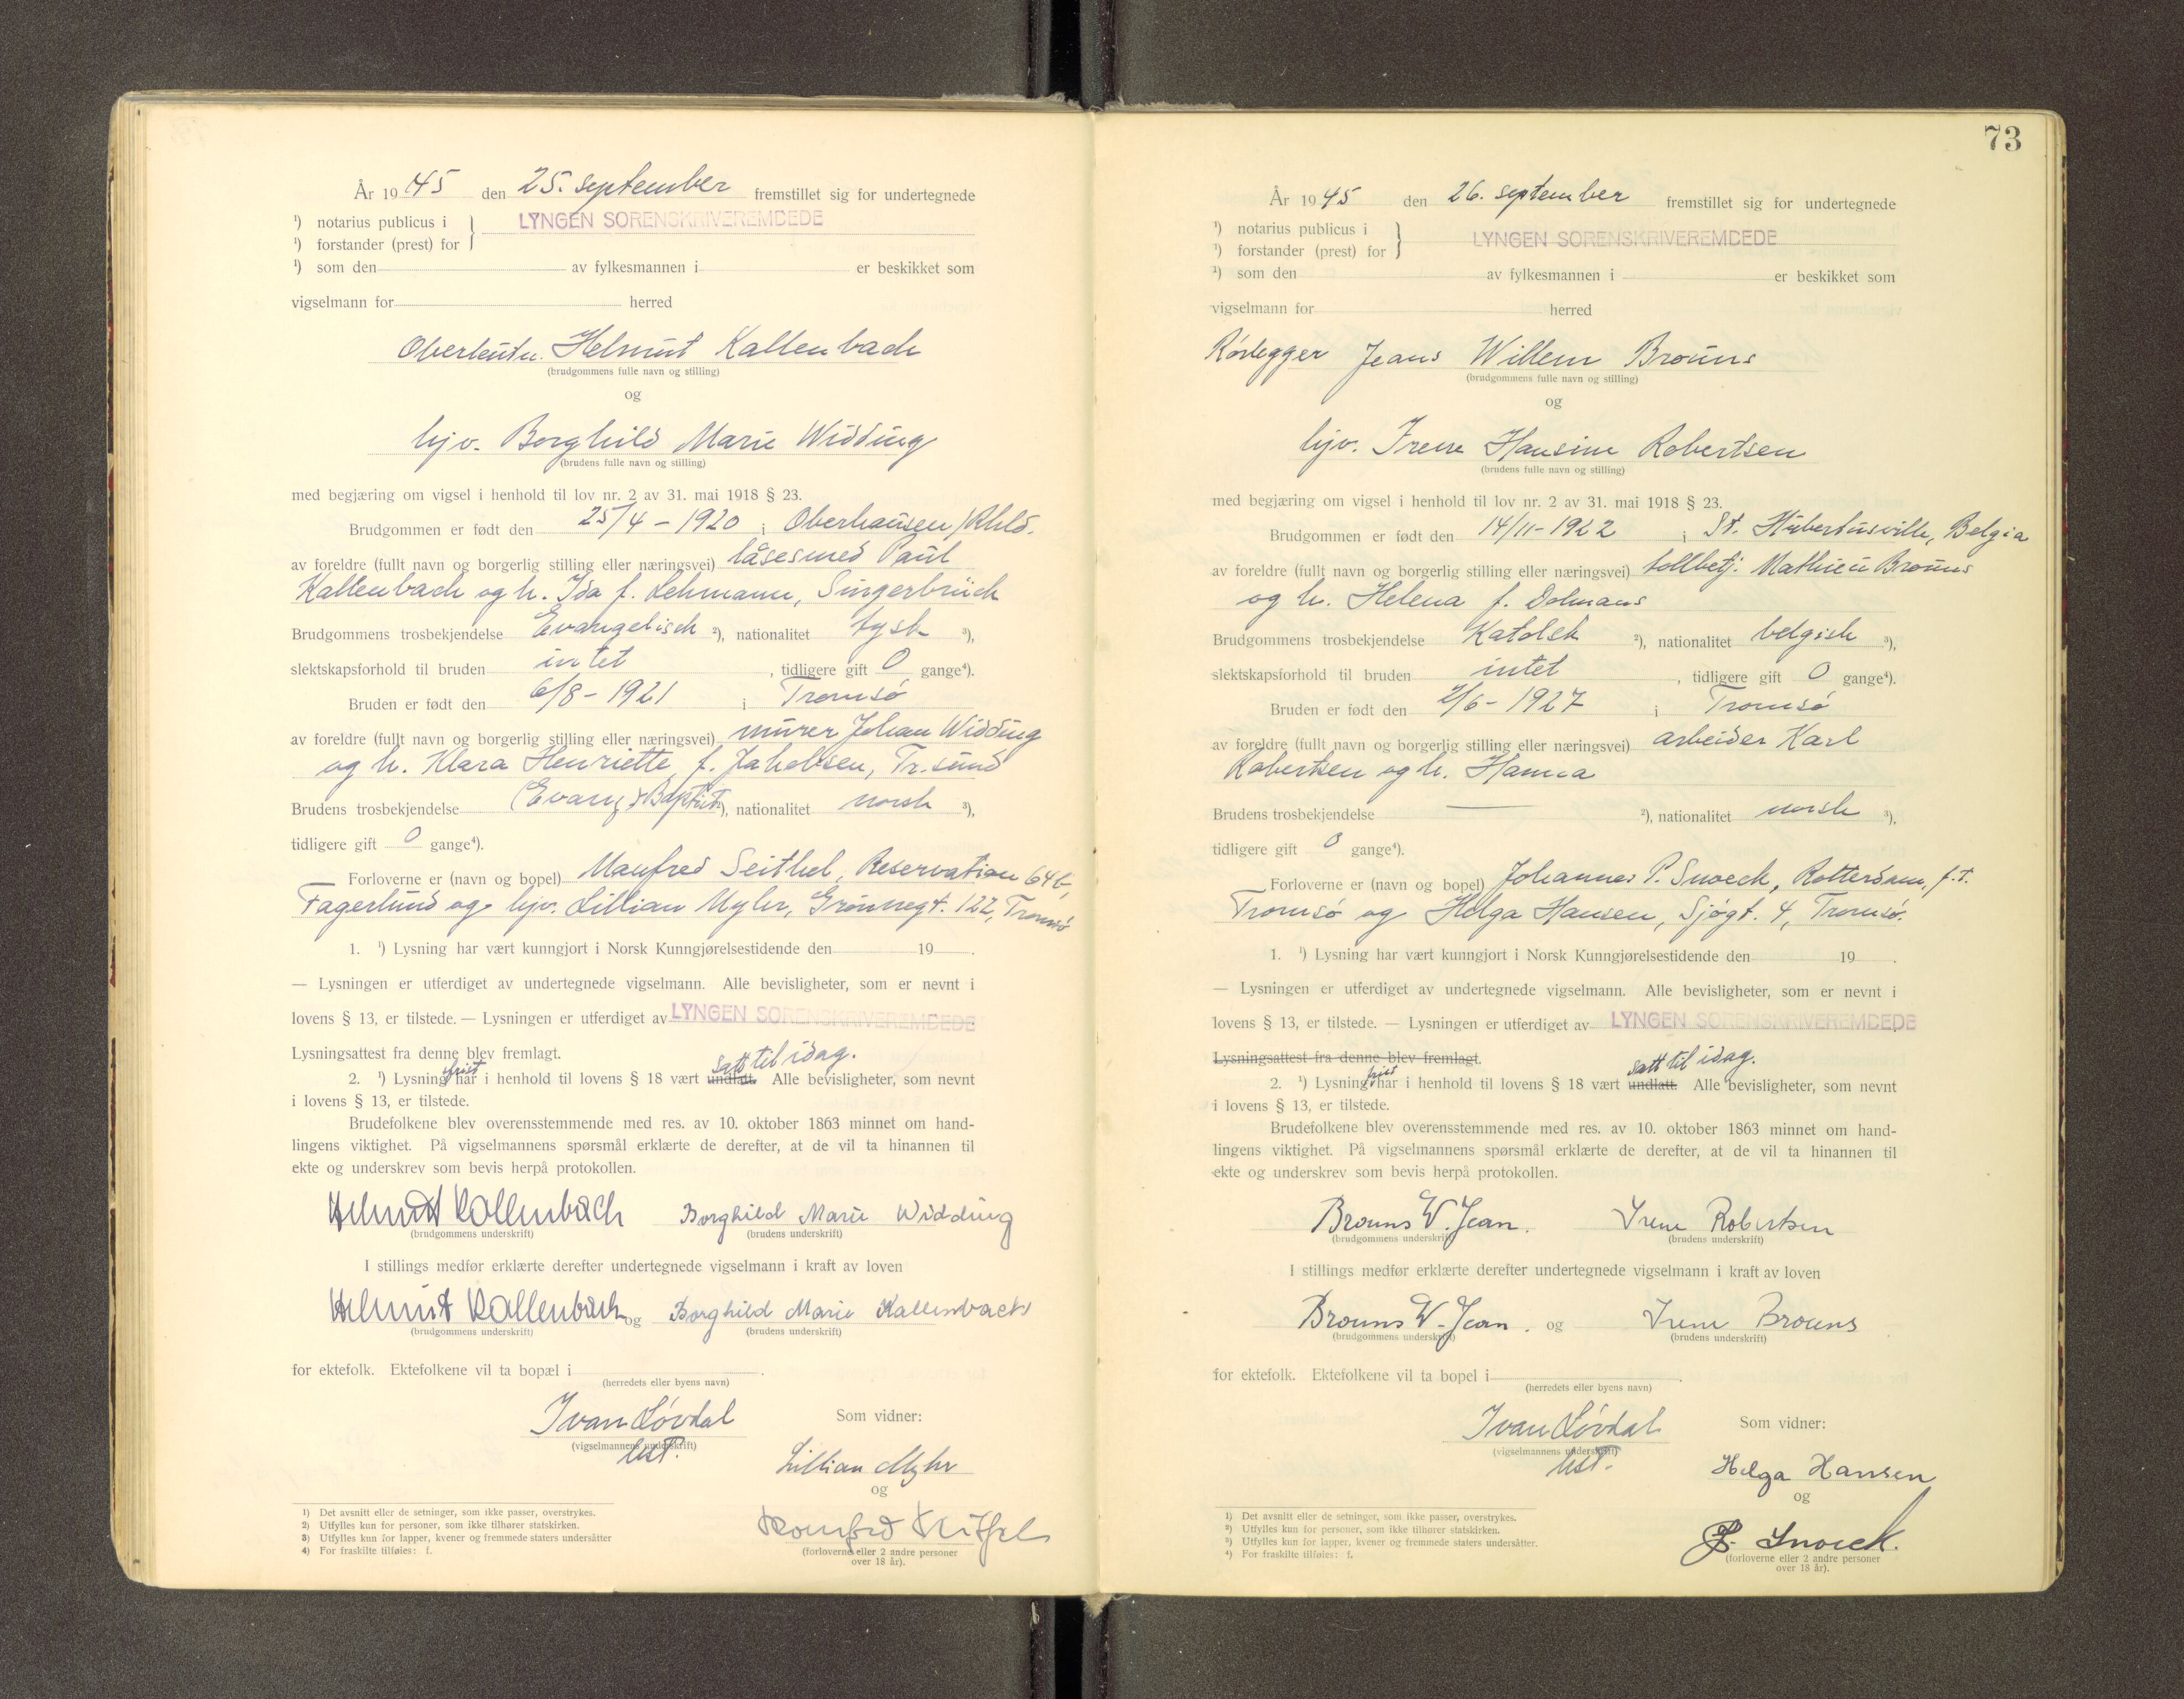 År 1945 den 25. september fremstillet sig for undertegnede
¹) notarius publicus i } LYNGEN SORENSKRIVEREMDEDE
¹) forstander (prest) for
¹) som den av fylkesmannen i er beskikket som
vigselmann for herred
Oberleutn. Helmut Kallenbach
(brudgommens fulle navn og stilling)
og
hjv. Borghild Marie Widding
(brudens fulle navn og stilling)
med begjæring om vigsel i henhold til lov nr. 2 av 31. mai 1918 § 23.
Brudgommen er født den 25/4 - 1920 i Oberhausen/Rhld.
av foreldre (fullt navn og borgerlig stilling eller næringsvei) låsesmed Paul
Kallenbach og h. Ida f. Lehmann,
Brudgommens trosbekjendelse Evangelisch ²), nationalitet tysk ³),
slektskapsforhold til bruden intet, tidligere gift 0 gange⁴).
Bruden er født den 6/8 - 1921 i Tromsø
av foreldre (fullt navn og borgerlig stilling eller næringsvei) murer Johan Widding
og h. Klara Henriette f. Jakobsen, Tr.sund
Brudens trosbekjendelse (Evang. Baptist ²), nationalitet norsk ³),
tidligere gift 0 gange⁴).
Forloverne er (navn og bopel) Manfred Seithel, Reservation 64b,
Fagerlund og hjv. Lillian Myhr, Grønnegt. 122, Tromsø
1. ¹) Lysning har vært kunngjort i Norsk Kunngjørelsestidende den 19 .
— Lysningen er utferdiget av undertegnede vigselmann. Alle bevisligheter, som er nevnt i
lovens § 13, er tilstede. — Lysningen er utferdiget av LYNGEN SORENSKRIVEREMDEDE
Lysningsattest fra denne blev fremlagt.
satt til idag.
2. ¹) Lysning frist har i henhold til lovens § 18 vært undlatt. Alle bevisligheter, som nevnt
i lovens § 13, er tilstede.
Brudefolkene blev overensstemmende med res. av 10. oktober 1863 minnet om hand-
lingens viktighet. På vigselmannens spørsmål erklærte de derefter, at de vil ta hinannen til
ekte og underskrev som bevis herpå protokollen.
Helmut Kallenbach Borghild Marie Widding
(brudgommens underskrift) (brudens underskrift)
I stillings medfør erklærte derefter undertegnede vigselmann i kraft av loven
Helmut Kallenbach og Borghild Marie Kallenbach
(brudgommens underskrift) (brudens underskrift)
for ektefolk. Ektefolkene vil ta bopæl i .
(herredets eller byens navn)
Ivan Løvdal Som vidner:
(vigselmannens underskrift)
ust.
Lillian Myhr
og
Manfred Seithel
(forloverne eller 2 andre personer
over 18 år).
1) Det avsnitt eller de setninger, som ikke passer, overstrykes.
2) Utfylles kun for personer, som ikke tilhører statskirken.
3) Utfylles kun for lapper, kvener og fremmede staters undersåtter
4) For fraskilte tilføies: f.
73
År 1945 den 26. september fremstillet sig for undertegnede
¹) notarius publicus i } LYNGEN SORENSKRIVEREMDEDE
¹) forstander (prest) for
¹) som den av fylkesmannen i er beskikket som
vigselmann for herred
Rørlegger Jeans Willem Brouns
(brudgommens fulle navn og stilling)
og
hjv. Irene Hansine Robertsen
(brudens fulle navn og stilling)
med begjæring om vigsel i henhold til lov nr. 2 av 31. mai 1918 § 23.
Brudgommen er født den 14/11-1922 i St. Hubertusville, Belgia
av foreldre (fullt navn og borgerlig stilling eller næringsvei) tollbetj. Mathieu Brouns
og h. Helena f. Dolmans
Brudgommens trosbekjendelse Katolsk ²), nationalitet belgisk ³),
slektskapsforhold til bruden intet, tidligere gift 0 gange⁴).
Bruden er født den 2/6 - 1927 i Tromsø
av foreldre (fullt navn og borgerlig stilling eller næringsvei) arbeider Karl
Robertsen og h. Hanna
Brudens trosbekjendelse — ²), nationalitet norsk ³),
tidligere gift 0 gange⁴).
Forloverne er (navn og bopel) Johannes P. Snoeck, Rotterdam, f.t.
Tromsø og Helga Hansen, Sjøgt. 4, Tromsø.
1. ¹) Lysning har vært kunngjort i Norsk Kunngjørelsestidende den 19 .
— Lysningen er utferdiget av undertegnede vigselmann. Alle bevisligheter, som er nevnt i
lovens § 13, er tilstede. — Lysningen er utferdiget av LYNGEN SORENSKRIVEREMDEDE
Lysningsattest fra denne blev fremlagt.
satt til idag.
2. ¹) Lysning frist har i henhold til lovens § 18 vært undlatt. Alle bevisligheter, som nevnt
i lovens § 13, er tilstede.
Brudefolkene blev overensstemmende med res. av 10. oktober 1863 minnet om hand-
lingens viktighet. På vigselmannens spørsmål erklærte de derefter, at de vil ta hinannen til
ekte og underskrev som bevis herpå protokollen.
Brouns W. Jean. Irene Robertsen
(brudgommens underskrift) (brudens underskrift)
I stillings medfør erklærte derefter undertegnede vigselmann i kraft av loven
Brouns W. Jean. og Irene Brouns
(brudgommens underskrift) (brudens underskrift)
for ektefolk. Ektefolkene vil ta bopel i .
(herredets eller byens navn)
Ivan Løvdal Som vidner:
(vigselmannens underskrift)
ust.
Helga Hansen
og
J. Snoeck.
(forloverne eller 2 andre personer
over 18 år).
1) Det avsnitt eller de setninger, som ikke passer, overstrykes.
2) Utfylles kun for personer, som ikke tilhører statskirken.
3) Utfylles kun for lapper, kvener og fremmede staters undersåtter.
4) For fraskilte tilføies: f.